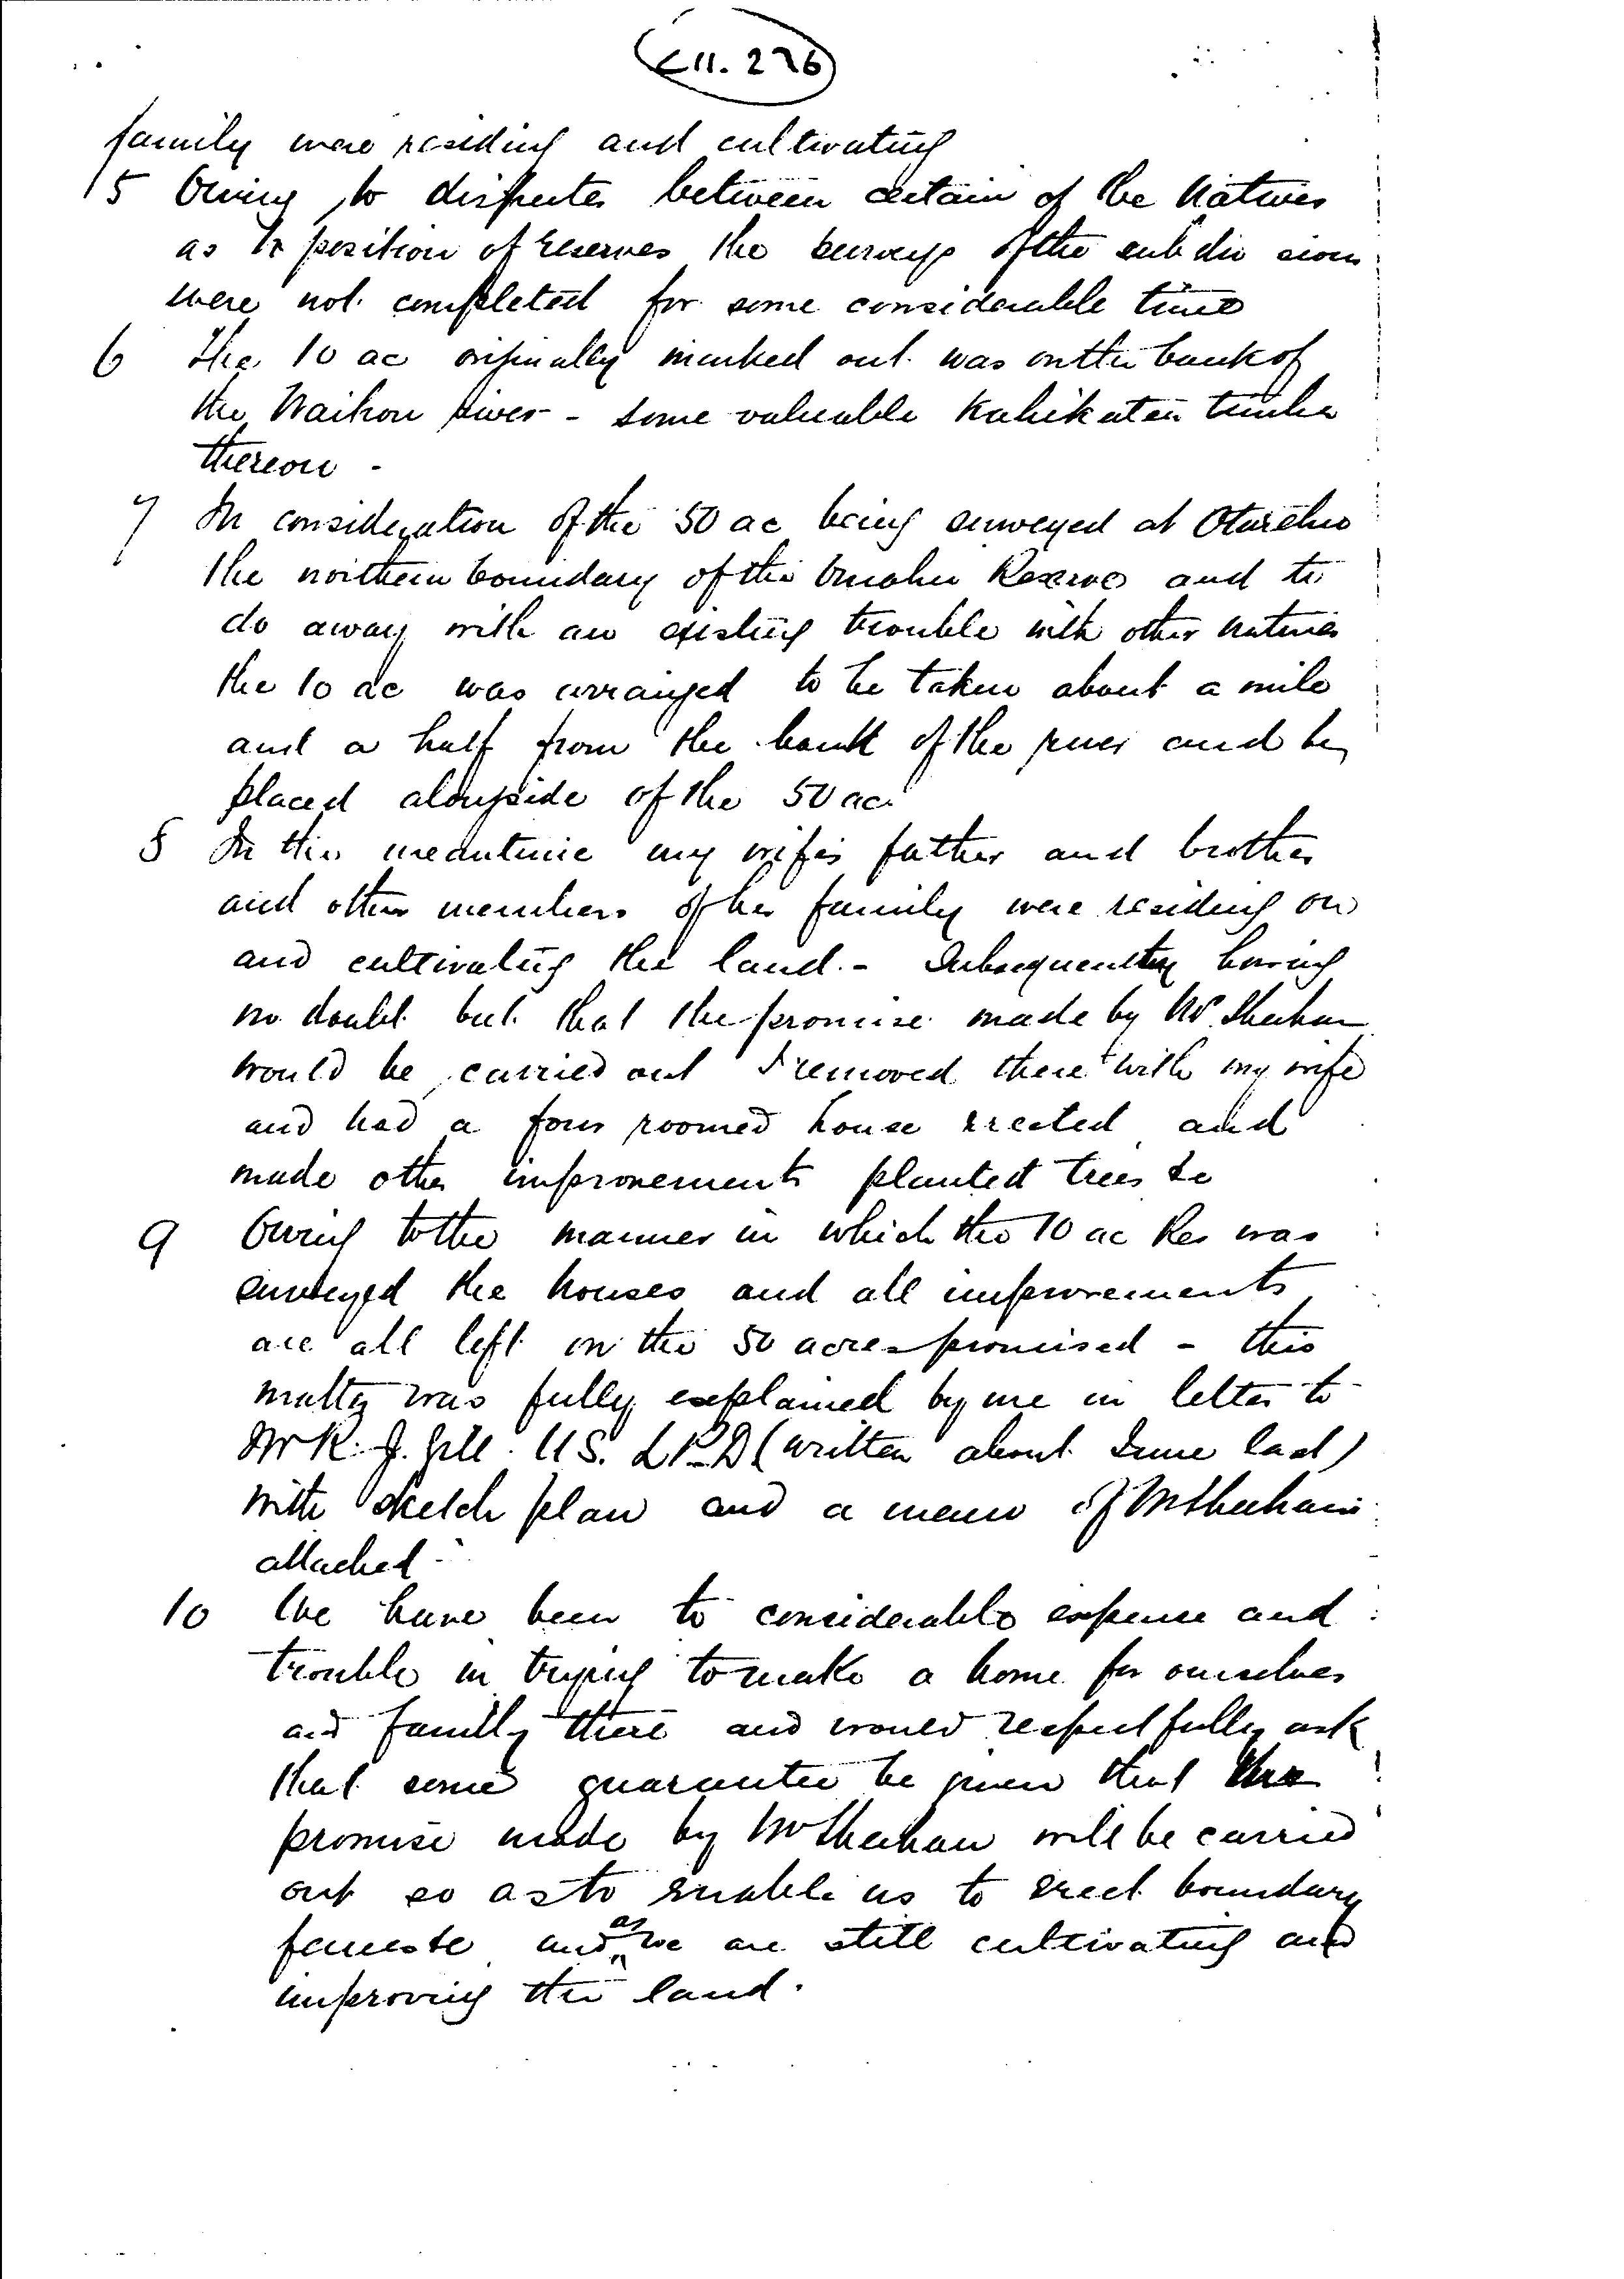 E11. 276
family were residing and cultivating
5 Owing to disputes between certain of the Natives
as to position of reserves the surveys of the subdivisions
were not completed for some considerable time
6 The 10 ac originally marked out was on the bank of
the Waihou river - some valuable Kahikatea timber
thereon -
7 In consideration of the 50 ac being surveyed at
the northern boundary of the Omahu Reserve and to
do away with an existing trouble with other natives
the 10 ac was arranged to be taken about a mile
and a half from the bank of the river and be
placed alongside of the 50 ac.
8 In the meantime my wife's father and brother
and other members of her family were residing on
and cultivating the land. - Subsequently having
no doubt but that the promise made by Mr Sheehan
would be carried out I removed there with my wife
and had a four roomed house erected and
made other improvements planted trees &c
9 Owing to the manner in which the 10 ac Res was
surveyed the houses and all improvements
are all left on the 50 acres promised - this
matter was fully explained by me in letter to
Mr R. J. Gill. U S. L P. D (written about June last)
with sketch plan and a memo of Mr Sheehans
attached -
10 We have been to considerable expense and
trouble in trying to make a home for ourselves
and family there and would respectfully ask
that some guarantee be given that the
promise made by Mr Sheehan will be carried
out so as to enable us to erect boundary
fences &c and as we are still cultivating and
improving the land.